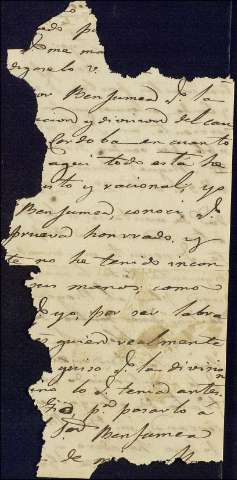 ado p
Pme ma
digaselo v.
or Benjumea q.e la
acion y division del cau
Cordoba en cuanto
aqui todo esta he
sto y racional; yo
Benjumea, conoci q.e
prueva honrrado, y
te no he tenido incon
sus manos; como
yo, por ser labra
es quien realmente
quiso q.e la divisio
ino lo q.e tenia antes.
p.a pasarlo a
Benjumea
de